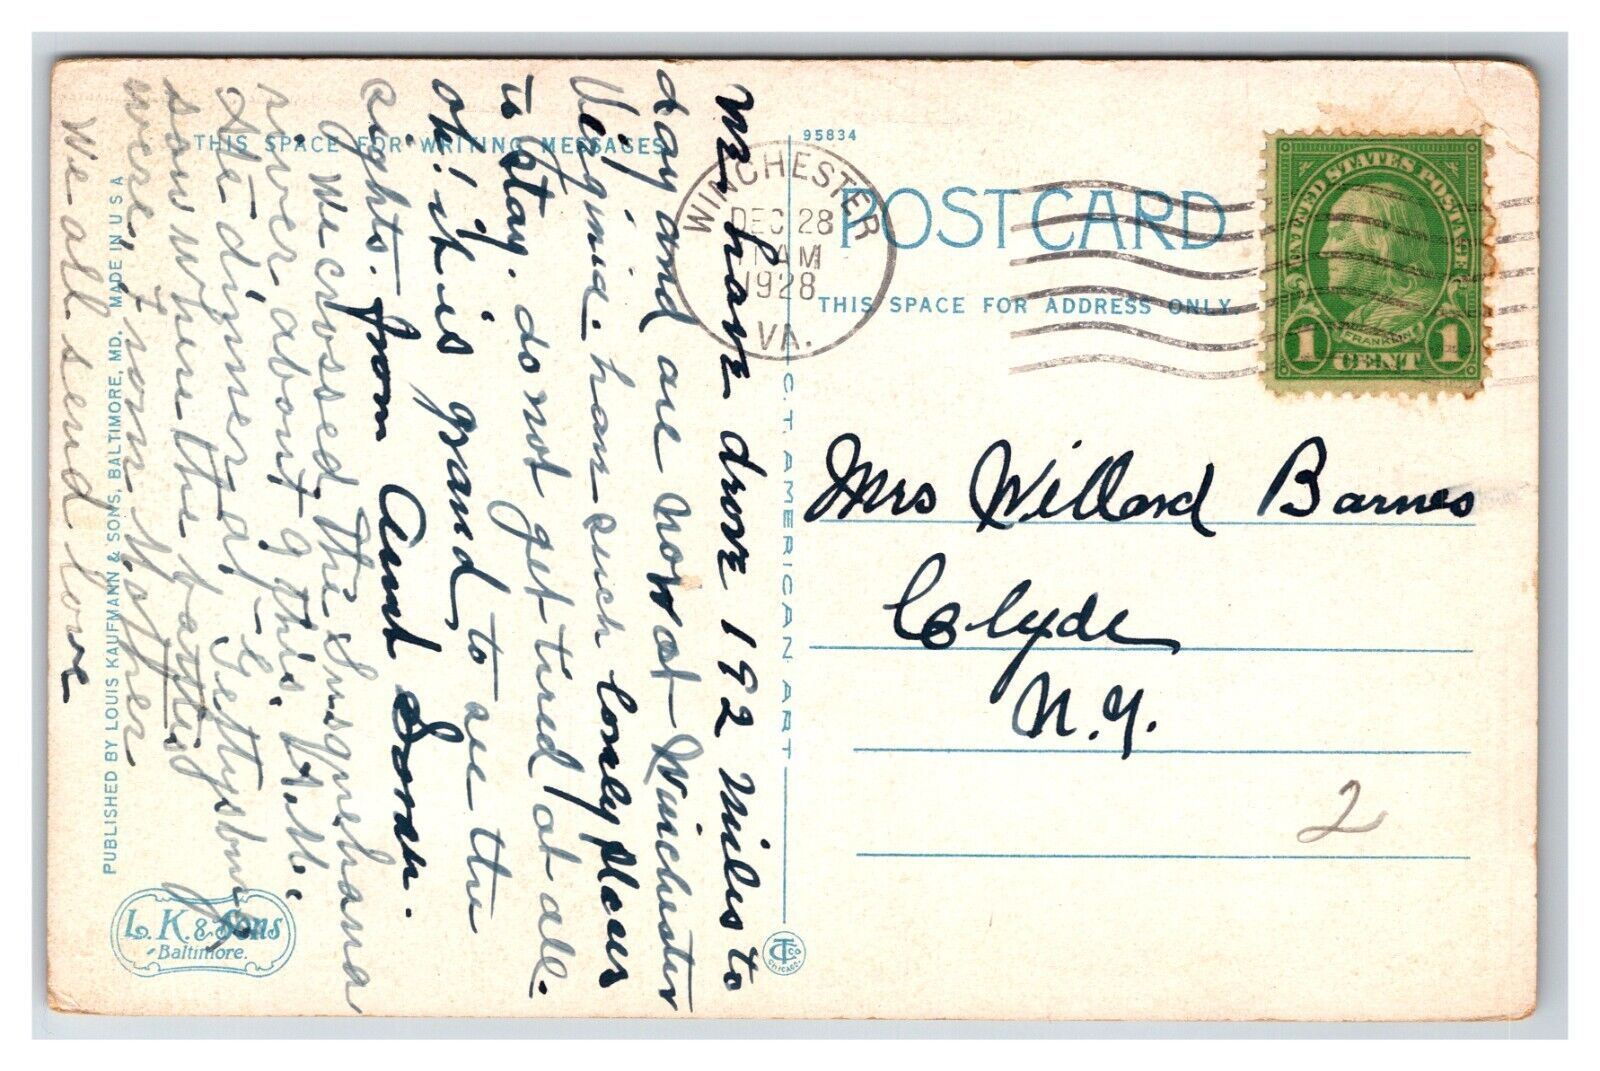 THIS SPACE FOR WRITING MESSAGES
95834
POST CARD
THIS SPACE FOR ADDRESS ONLY
WINCHESTER
DEC 28
AM
1928
VA.
UNITED STATES POSTAGE
FRANKLIN
1 CENT 1
We have drove 192 miles to
day and are now at Winchester
Virginia. has such lonly places
to stay. do not get tired at all.
oh! it is grand, to see the
sights. from Aunt
We crossed the Susquehana
river about 9 this A.M.
Ate dinner at Gettysburg
saw where the battles
were,
We all send love
Mrs Willard Barnes
Clyde
N.Y.
2
C.T. AMERICAN ART
PUBLISHED BY LOUIS KAUFMANN & SONS, BALTIMORE, MD. MADE IN U S A
L. K. & Sons
Baltimore.
CHICAGO.